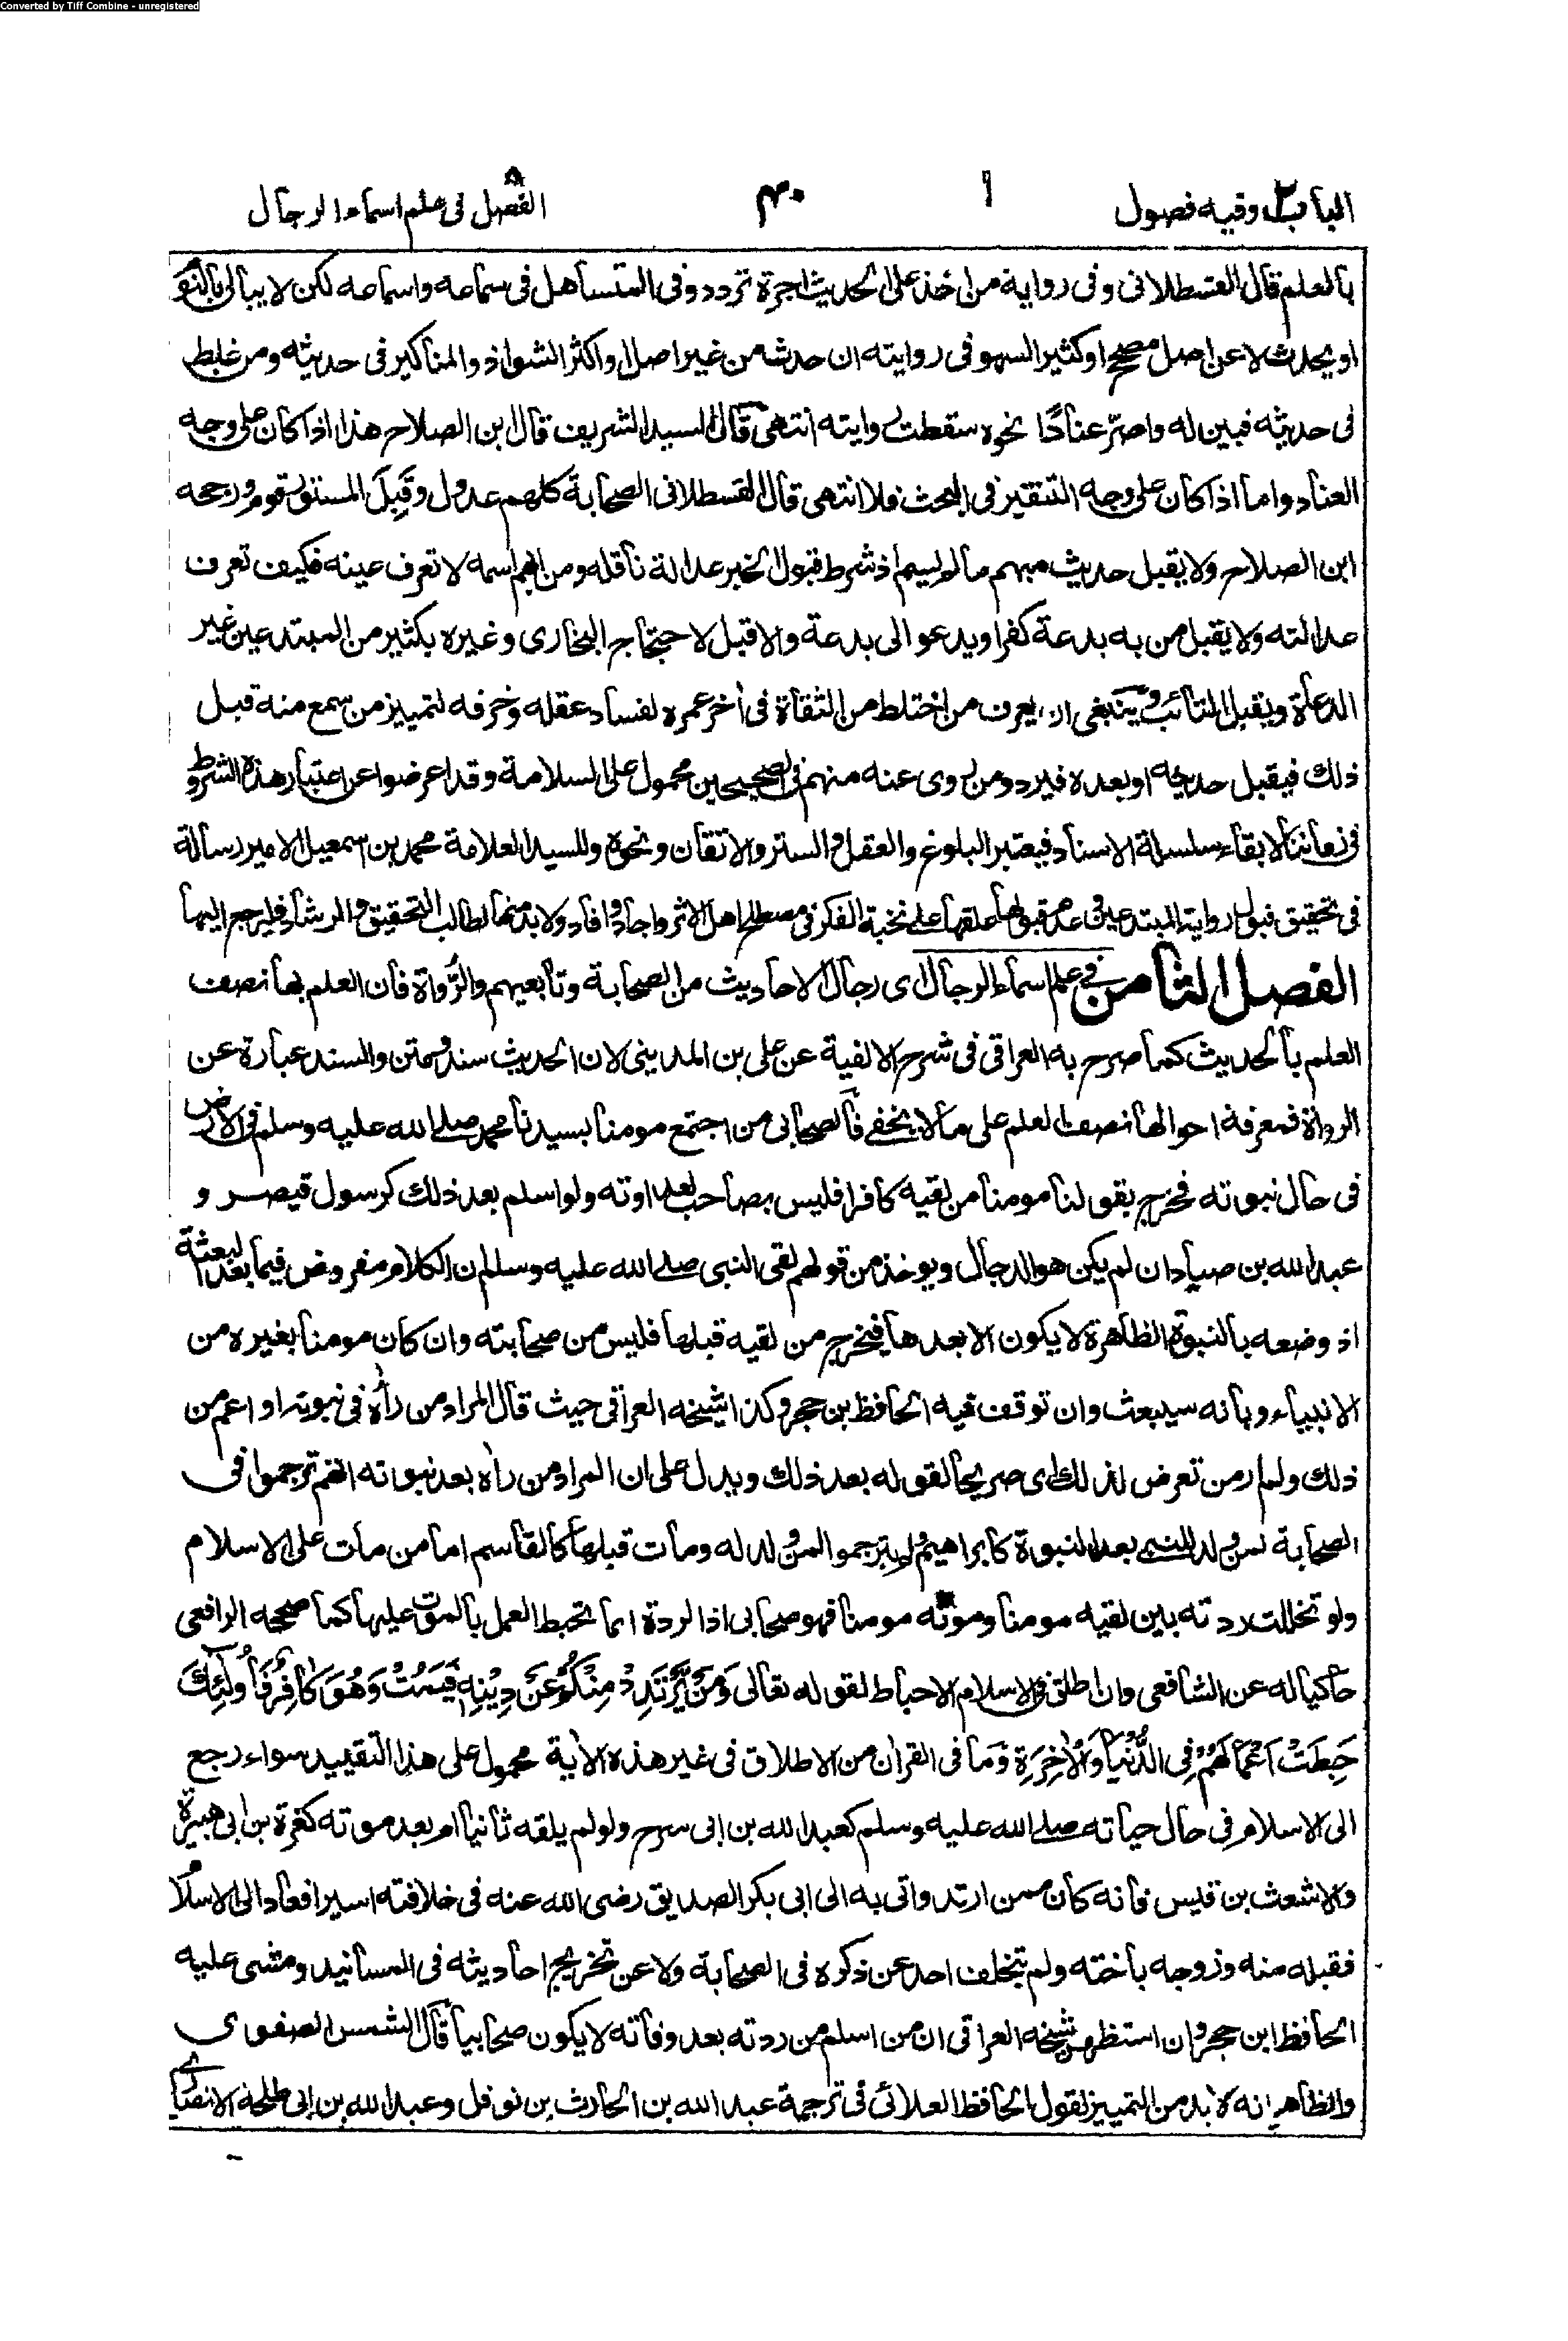 Converted by Tiff Combine - unregistered
الباب ٢ وفيه فصول ٤٠ الفصل ٨ في علم اسماء الرجال
بالعلم قال القسطلاني وفي رواية من اخذ على الحديث اجرة تردد وفي المتساهل في سماعه واسماعه لكن لا يبالي بالنوم
او يحدث لا عن اصل مصحح او كثير السهو في روايته ان حدث من غير اصل او اكثر الشواذ والمناكير في حديثه ومن غلط
في حديثه فبين له واصرّ عنادًا نحوه سقطت روايته انتهى قال السيد الشريف قال ابن الصلاح هذا اذا كان على وجه
العناد واما اذا كان على وجه التنقير في البحث فلا انتهى قال القسطلاني الصحابة كلهم عدول وقَبِلَ المستور قوم ورجحه
ابن الصلاح ولا يقبل حديث مبهم ما لم يسم اذ شرط قبول الخبر عدالة ناقله ومن ابهم اسمه لا تعرف عينه فكيف تعرف
عدالته ولا يقبل من به بدعة كفر او يدعو الى بدعة والا قبل لاحتجاج البخاري وغيره بكثير من المبتدعين غير
الدعاة ويقبل التائب وينبغي ان يعرف من اختلط من الثقاة في اخر عمره لفساد عقله وخرفه لتمييز من سمع منه قبل
ذلك فيقبل حديثه او بعده فيرد ومن روى عنه منهم في الصحيحين محمول على السلامة وقد اعرضوا عن اعتبار هذه الشروط
في زماننا لابقاء سلسلة الاسناد فيعتبر البلوغ والعقل والستر والاتقان ونحوه وللسيد العلامة محمد بن اسمعيل الامير رسالة
في تحقيق قبول رواية المبتدعين وعدم قبولها علقها على نخبة الفكر في مصطلح اهل الاثر واجاد وافاد ولا بد منها لطالب التحقيق والرشاد فليرجع اليها
الفصل الثامن في علم اسماء الرجال اى رجال الاحاديث من الصحابة وتابعيهم والرُّواة فان العلم بها نصف
العلم بالحديث كما صرح به العراقي في شرح الالفية عن على بن المديني لان الحديث سند ومتن والسند عبارة عن
الرواة فمعرفة احوالها نصف العلم على ما لا يخفى فالصحابي من اجتمع مومنا بسيدنا محمد صلى الله عليه وسلم في الارض
في حال نبوته فخرج بقولنا مومنا من لقيه كافرا فليس بصاحب لعداوته ولو اسلم بعد ذلك كرسول قيصر و
عبد الله بن صياد ان لم يكن هو الدجال ويوخذ من قولهم لقى النبي صلى الله عليه وسلم ان الكلام مفروض فيما بعد البعثة
اذ وضعه بالنبوة الظاهرة لا يكون الا بعدها فيخرج من لقيه قبلها فليس من صحابته وان كان مومنا بغيره من
الانبياء وبانه سيبعث وان توقف فيه الحافظ بن حجر وكذا شيخه العراقي حيث قال المراد من رأه في نبوته او اعم من
ذلك ولم ار من تعرض لذلك اى صريحا لقوله بعد ذلك ويدل على ان المراد من رأه بعد نبوته انهم ترجموا في
الصحابة لمن ولد للنبى بعد النبوة كابراهيم ولم يترجموا لمن ولد له ومات قبلها كالقاسم اما من مات على الاسلام
ولو تخللت ردته بين لقيه مومنا وموته مومنا فهو صحابي اذ الردة انما تحبط العمل بالموت عليها كما صححه الرافعى
حاكيا له عن الشافعى وان اطلق في الاسلام الاحباط لقوله تعالى وَمَنْ يَّرْتَدِدْ مِنْكُمْ عَنْ دِيْنِهٖ فَيَمُتْ وَهُوَ كَافِرٌ فَأُولٰٓئِكَ
حَبِطَتْ اَعْمَالُهُمْ فِي الدُّنْيَا وَالْاٰخِرَةِ وَمَا في القران من الاطلاق في غير هذه الاٰية محمول على هذا التقييد سواء رجع
الى الاسلام في حال حياته صلى الله عليه وسلم كعبد الله بن ابى سرح ولو لم يلقه ثانيا ام بعد موته كقرة بن ابى هبيرة
والاشعث بن قيس فانه كان ممن ارتد واتى به الى ابى بكر الصديق رضى الله عنه في خلافته اسيرا فعاد الى الاسلام
فقبله منه وزوجه باخته ولم يتخلف احد عن ذكره في الصحابة ولا عن تخريج احاديثه في المسانيد ومشى عليه
الحافظ ابن حجر وان استظهر شيخه العراقي ان من اسلم من ردته بعد وفاته لا يكون صحابيا قال الشمس الصفوى
والظاهر انه لا بد من التمييز لقول الحافظ العلائى في ترجمة عبد الله بن الحارث بن نوفل وعبد الله بن ابى طلحة الانصارى